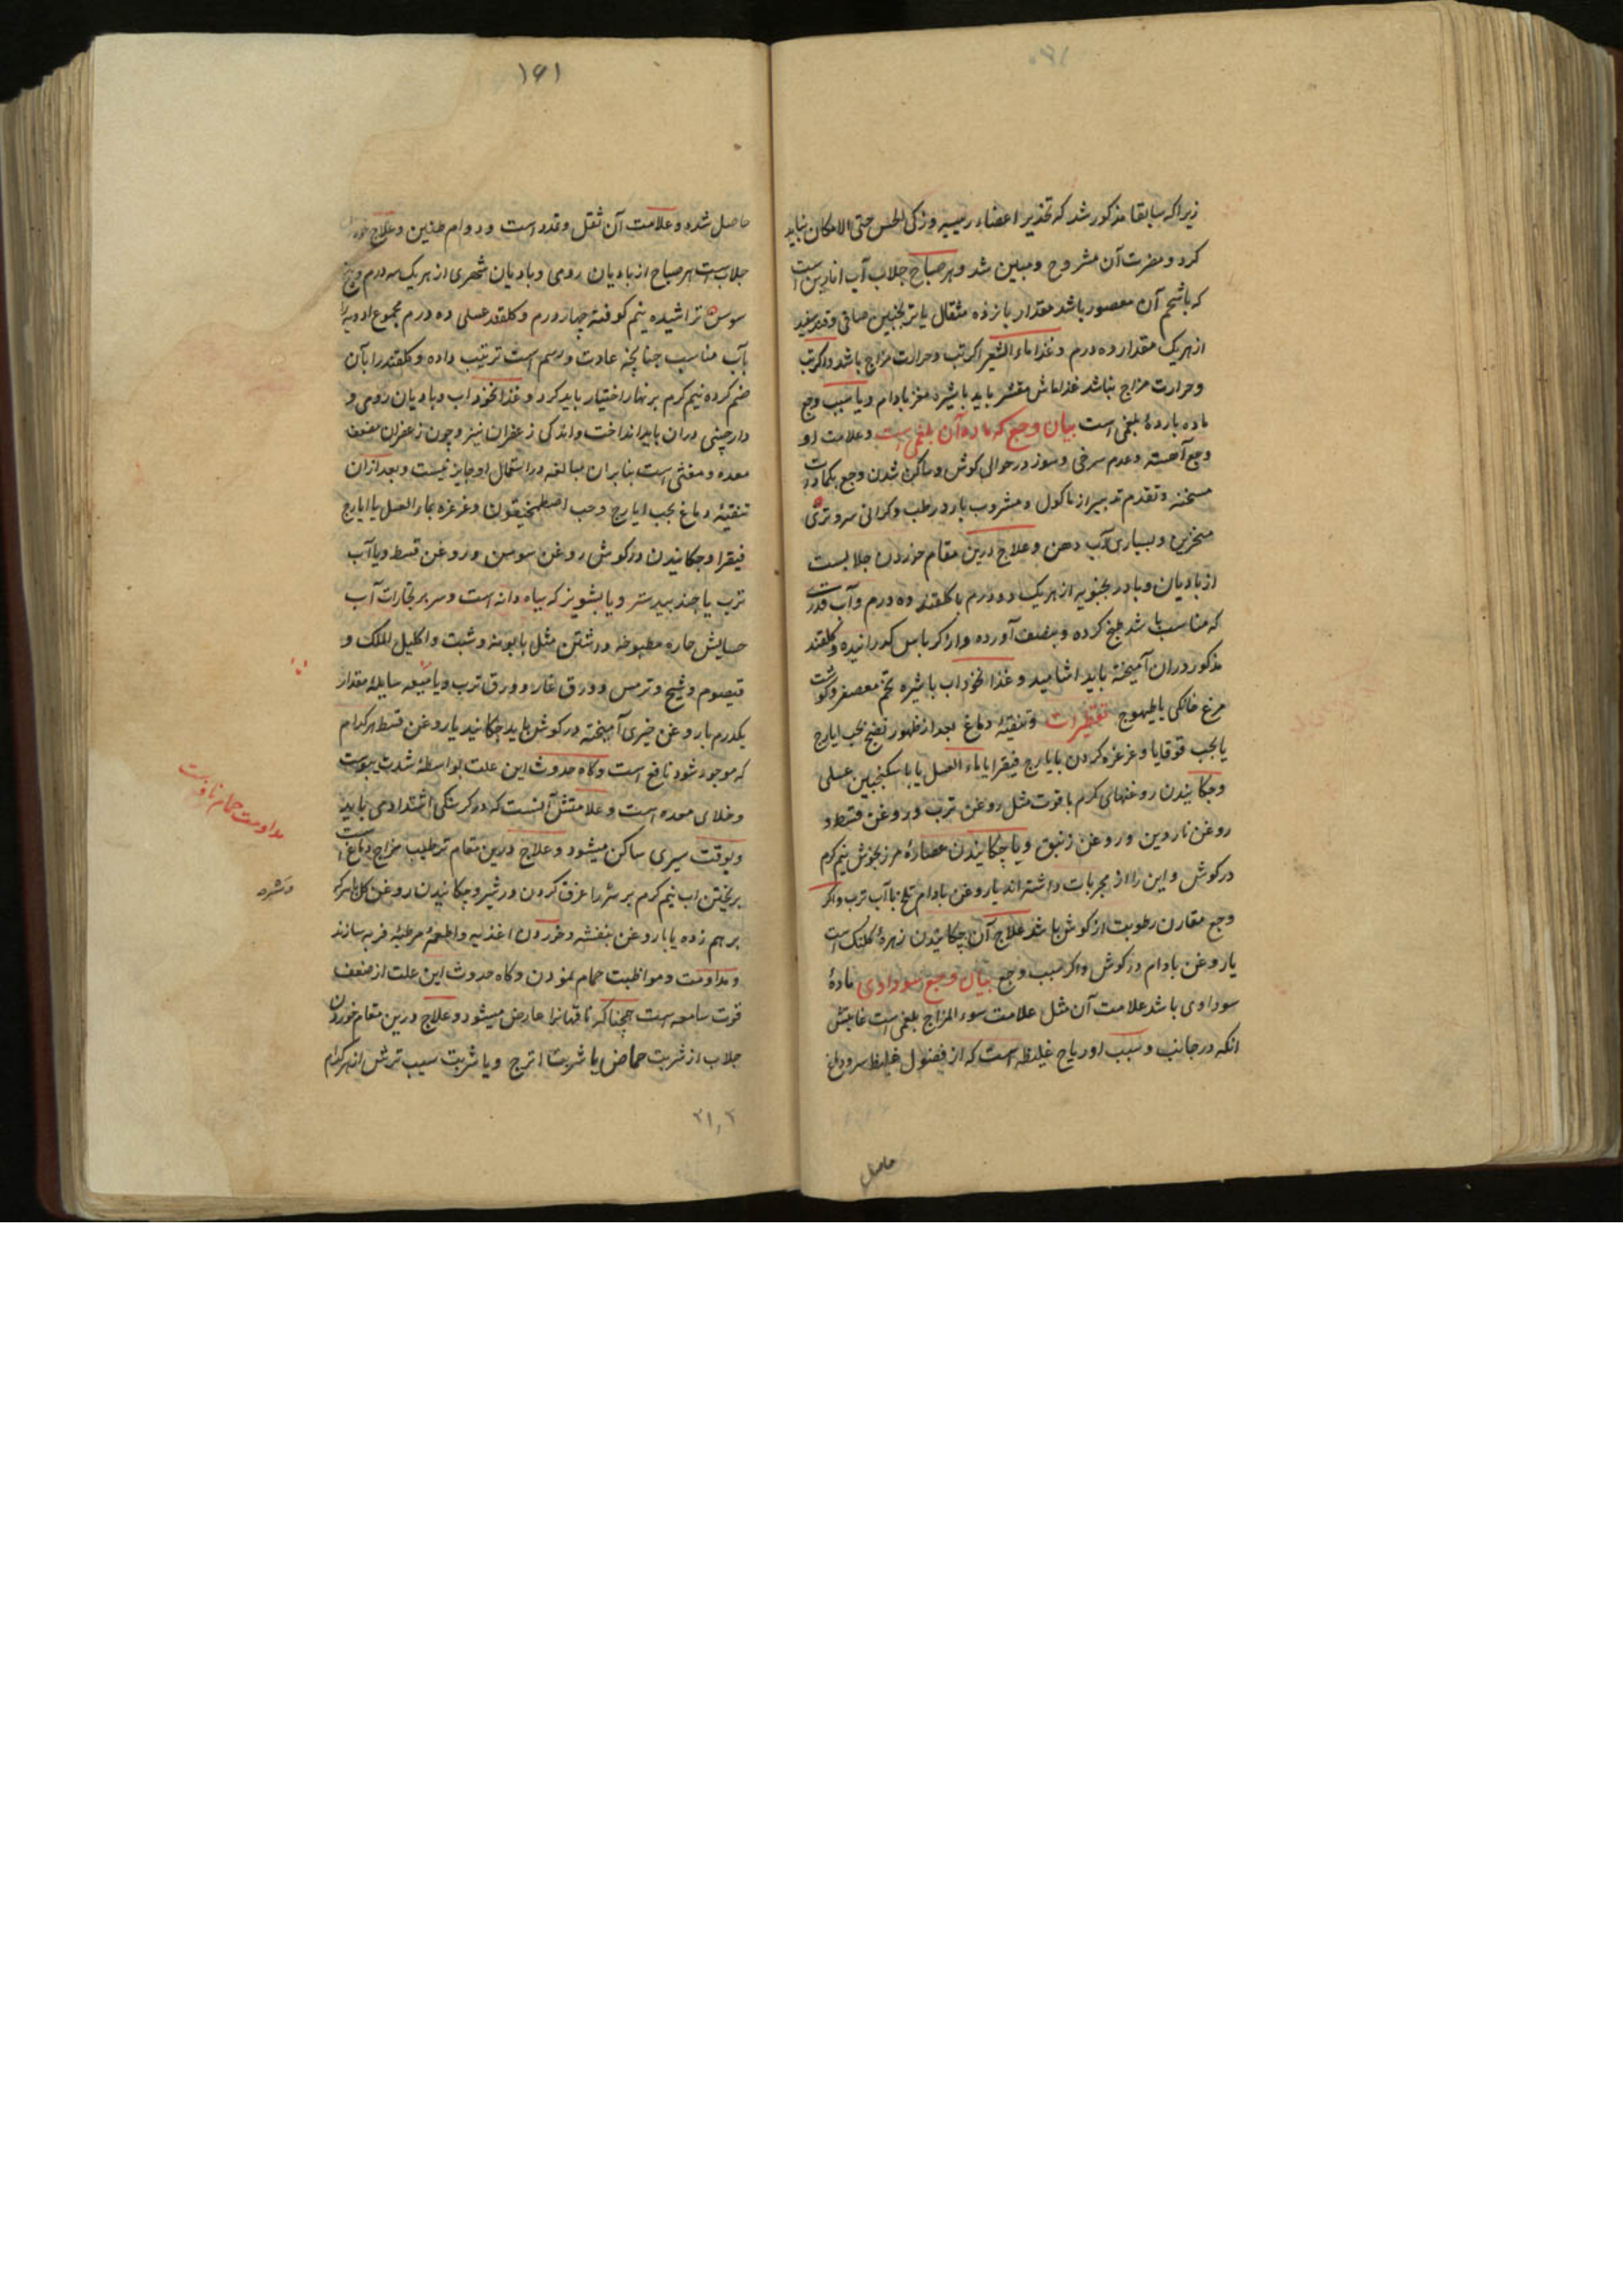 زیرا که سابقا مذکور شد که تخذیر اعضاء رییسه وذکی الحس حتی الامکان نباید
کرد و مضرت آن مشروح و مبین شد وهر صباح جلاب آب انارین است
که باشحم آن معصور باشد مقدار پانزده مثقال یا ترنجبین صافی وقند سفید
از هر یک مقدار ده درم وغذا ماء الشعیر اگر تب وحرارت مزاج باشد واگر تب
وحرارت مزاج نباشد غذا ماش مقشر باید باشیره مغز بادام ویا سبب وجع
ماده بارده بلغمی است بیان وجع که ماده آن بلغمی است وعلامت او
وجع آهسته وعدم سرخی وسوز در حوالی کوش وساکن شدن وجع بکمادات
مسخنه وتقدم تدبیر از ماکول ومشروب بارد رطب وکرانی سر وتری
منخرین وبسیاری آب دهن وعلاج درین مقام خوردن جلابست
از بادیان وبادرنجبویه از هر یک دو درم باکلقند ده درم وآب قدری
که مناسب باشد طبخ کرده وبنصف آورده واز کرباس کذرانیده وکلقند
مذکور دران آمیخته باید اشامید وغذا نخوداب باشیره تخم معصفر وکوشت
مرغ خانکی یا طیهوج تقطیرات وتنقیه دماغ بعد از ظهور نضج بحب ایارج
یا بحب قوقایا وغرغره کردن بایارج فیقرا یا ماء العسل یا با سکنجبین عسلی
وچکانیدن روغنهای کرم باقوت مثل روغن ترب وروغن قسط و
روغن ناردین وروغن زنبق ویا چکانیدن عصاره مرزنجوش نیم کرم
در کوش واین را از مجربات داشته اند یا روغن بادام تلخ با آب ترب واکر
وجع مقارن رطوبت از کوش باشد علاج آن چکانیدن زهره کلنک است
یا روغن بادام در کوش واکر سبب وجع بیان وجع سوداوی ماده
سوداوی باشد علامت آن مثل علامت سوء المزاج بلغمی است غایتش
انکه در جانب وسبب او ریاح غلیظه است که از فضول غلیظ سر ودماغ
حاصل
۱۶۱
حاصل شده وعلامت آن ثقل وتمدد است ودوام طنین وعلاج
جلاب است هر صباح از بادیان رومی وبادیان شهری از هر یک سه درم وبیخ
سوس تراشیده نیم کوفته چهار درم وکلقند عسلی ده درم مجموع ادویه را
بآب مناسب چنانچه عادت ورسم است ترتیب داده وکلقند را بآن
ضم کرده نیم کرم برنهار اختیار باید کرد وغذا نخوداب وبادیان رومی و
دارچینی دران باید انداخت واندکی زعفران نیز وچون زعفران مضعف
معده ومغثی است بنابران مبالغه در استعمال او جایز نیست وبعد از ان
تنقیه دماغ بحب ایارج وحب اصطمخیقون وغرغره بماء العسل با ایارج
فیقرا وچکانیدن در کوش روغن سوسن وروغن قسط ویا آب
ترب یا جندبیدستر ویا بشونیز که سیاه دانه است وسر بر بخارات آب
حسایش حاره مطبوخه داشتن مثل بابونه وشبت واکلیل الملک و
قیصوم وشیح وترمس وورق غار وورق ترب ویا میعه سایله مقدار
یکدرم با روغن خیری آمیخته در کوش باید چکانید یا روغن قسط هر کدام
که موجود شود نافع است وکاه حدوث این علت بواسطه شدت یبوست
وخلای معده است وعلامتش آنست که در کرسنکی اشتدادی یابد
وبوقت سیری ساکن میشود وعلاج درین مقام ترطیب مزاج دماغ است
بریختن اب نیم کرم بر سر یا غرق کردن در شیر وچکانیدن روغن کل باسرکه
برهم زده یا با روغن بنفشه وخوردن اغذیه واطعمه مرطبه فربه سازند
ومداومت ومواظبت حمام نمودن وکاه حدوث این علت از ضعف
قوت سامعه است همچنانکه ناقهانرا عارض میشود وعلاج درین مقام خوردن
جلاب از شربت حماض یا شربت اترج ویا شربت سیب ترش از هر کدام
مداومت حمام
۲۱۰۲